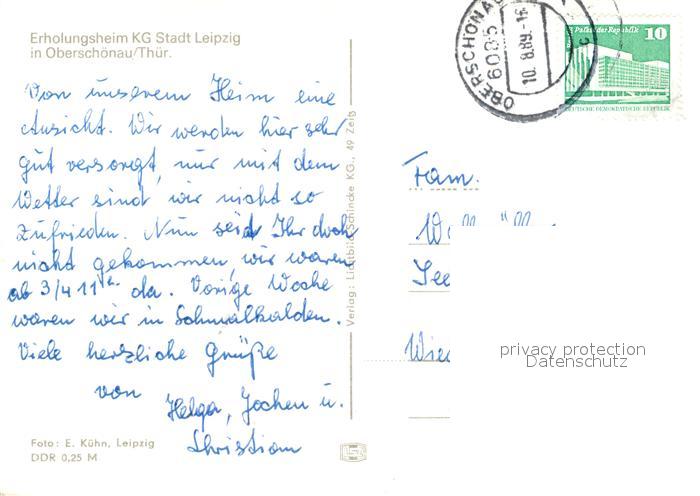 Erholungsheim KG Stadt Leipzig
in Oberschönau/Thür.
Von unserem Heim eine
Ansicht. Wir werden hier sehr
gut versorgt, nur mit dem
Wetter sind wir nicht so
zufrieden. Nun seid Ihr doch
nicht gekommen, wir waren
ab 3/4 11 da. Vorige Woche
waren wir in Schmalkalden.
Viele herzliche Grüße
von
Helga, Jochen u.
Christian
Foto: E. Kühn, Leipzig
DDR 0,25 M
Verlag: Lichtbild-Schincke KG., 49 Zeitz
OBERSCHÖNAU
6085
10.8.89
Palast der Republik
10
DEUTSCHE DEMOKRATISCHE REPUBLIK
Fam.
privacy protection
Datenschutz